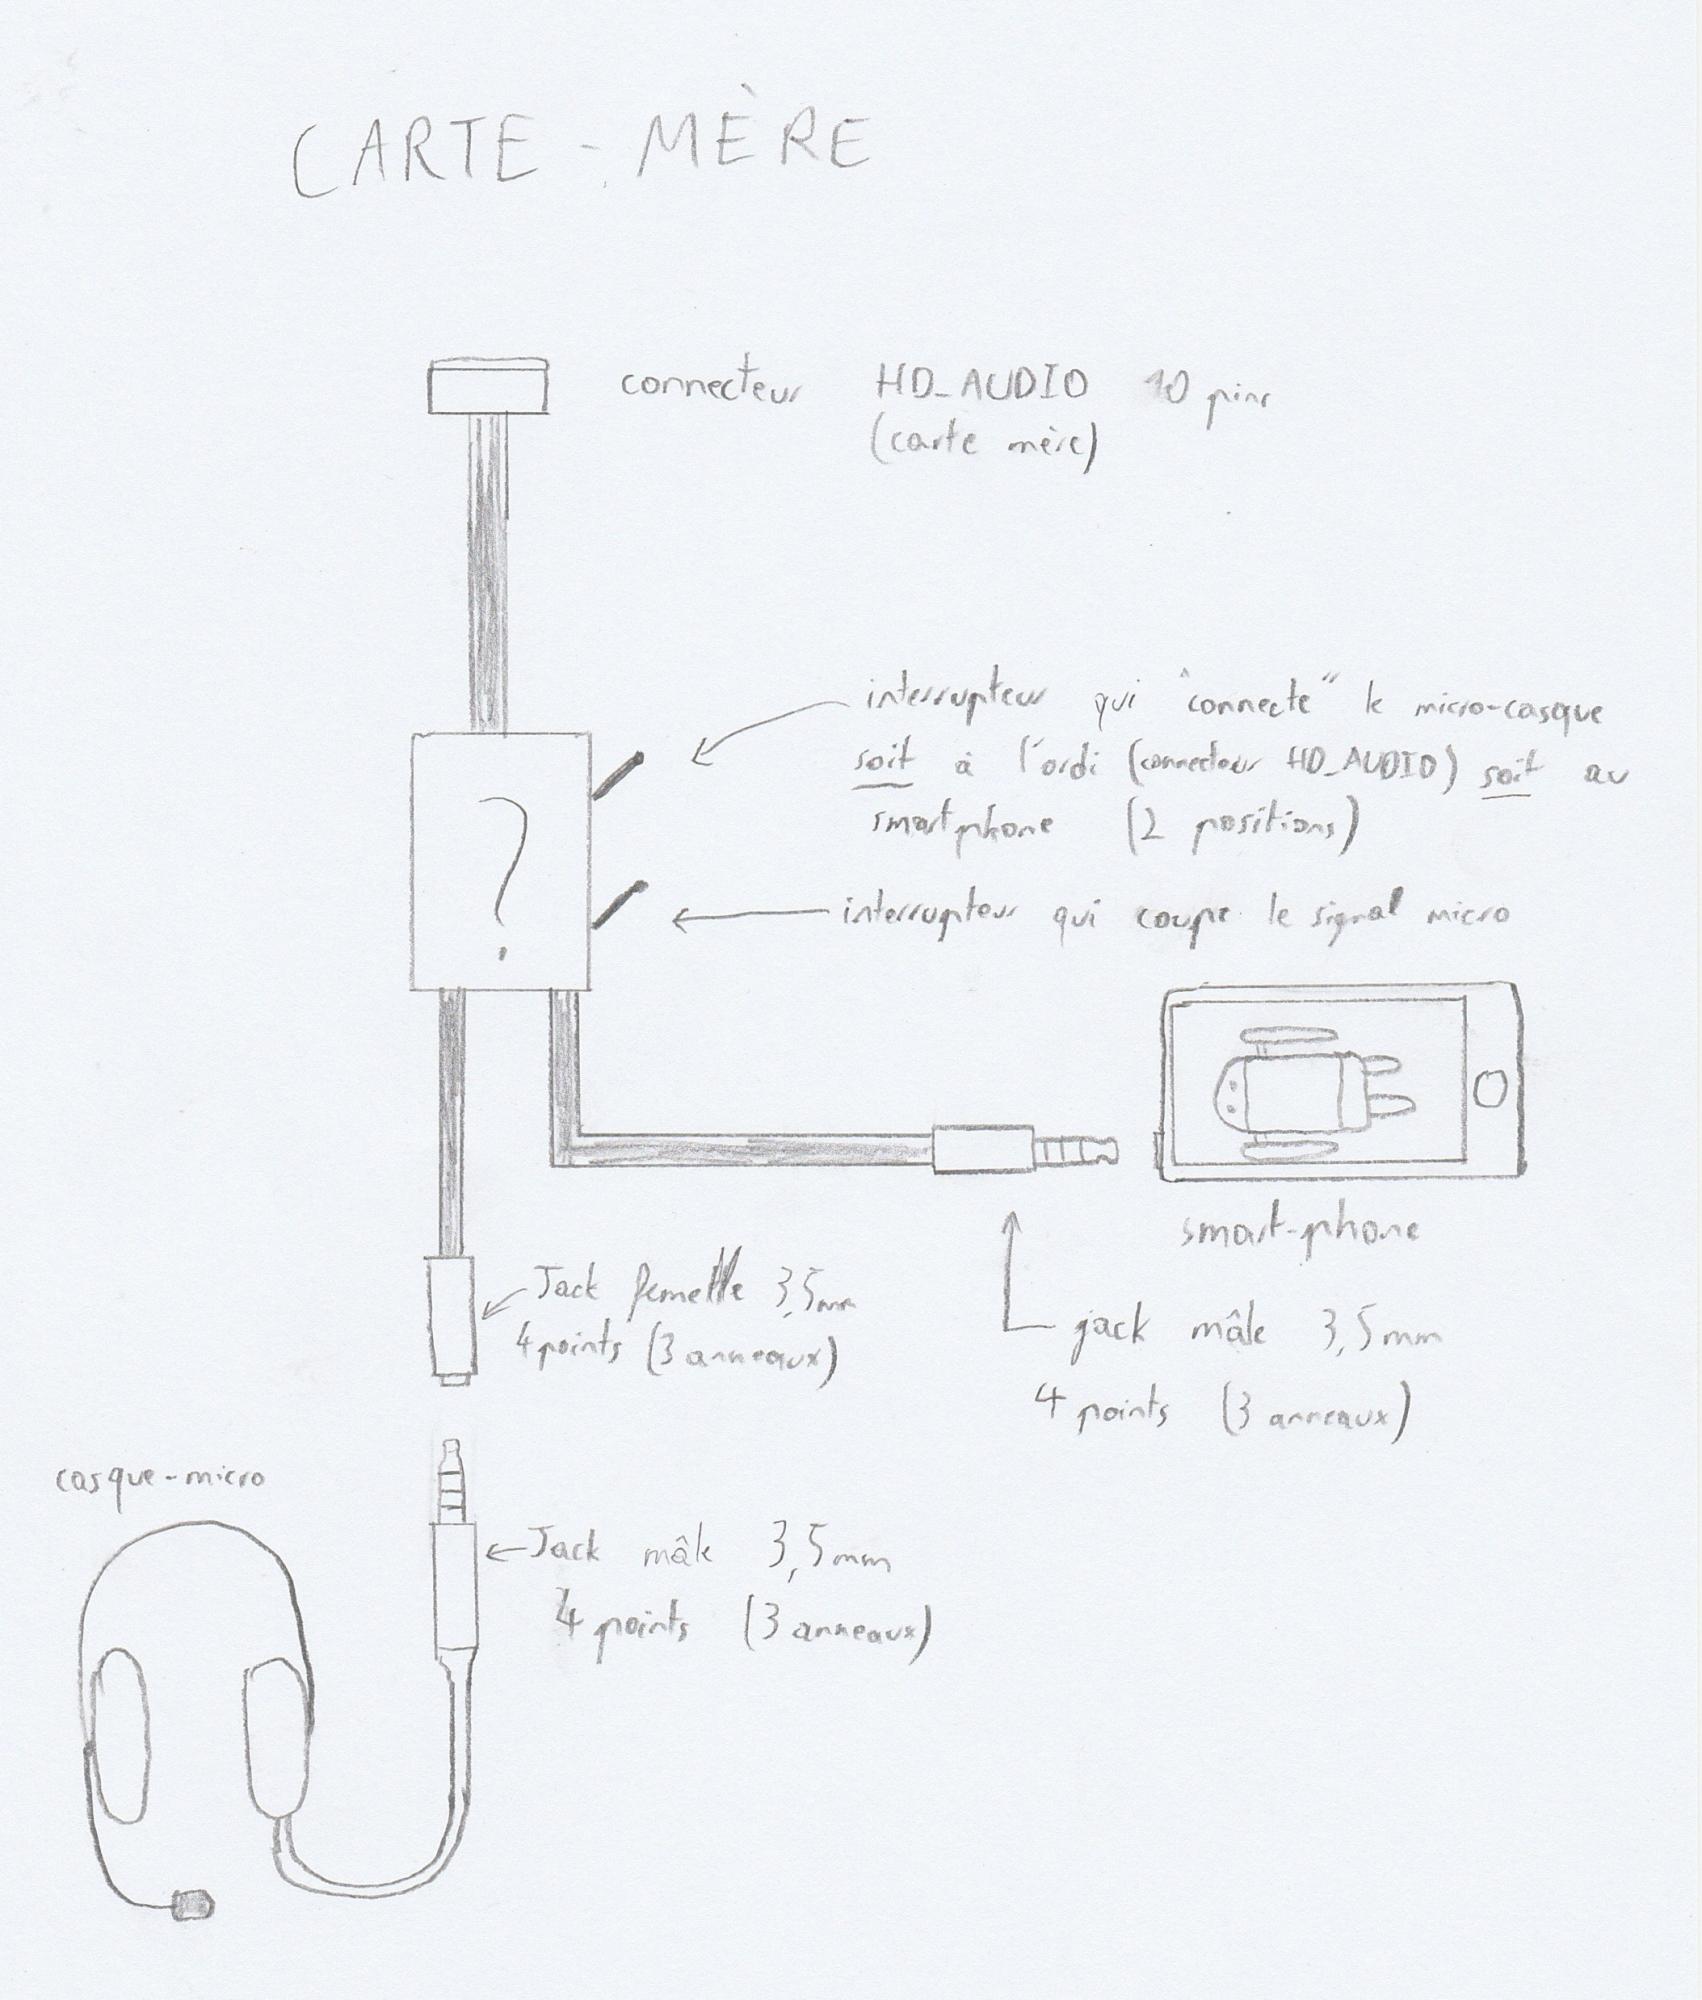 CARTE-MÈRE
connecteur HD_AUDIO 10 pins
(carte mère)
interrupteur qui "connecte" le micro-casque
soit à l'ordi (connecteur HD_AUDIO) soit au
smartphone (2 positions)
?
interrupteur qui coupe le signal micro
smart-phone
Jack femelle 3,5mm
4 points (3 anneaux)
jack mâle 3,5mm
4 points (3 anneaux)
casque-micro
Jack mâle 3,5mm
4 points (3 anneaux)